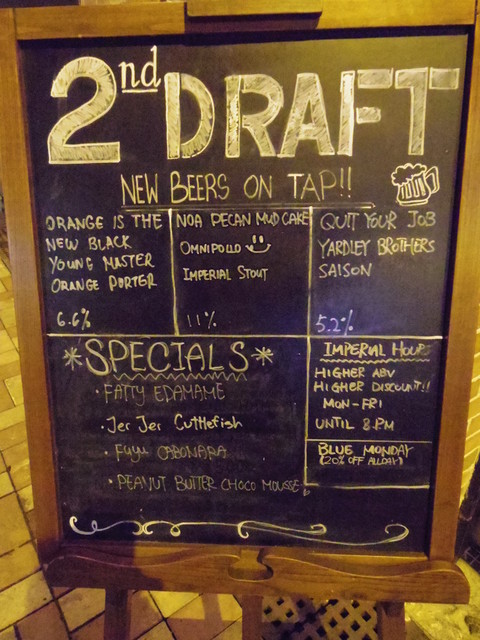 2nd DRAFT
NEW BEERS ON TAP!!
ORANGE IS THE
NEW BLACK
YOUNG MASTER
ORANGE PORTER
6.6%
NOA PECAN MUD CAKE
OMNIPOLLO
IMPERIAL STOUT
11%
QUIT YOUR JOB
YARDLEY BROTHERS
SAISON
5.2%
*SPECIALS*
· FATTY EDAMAME
· Jer Jer Cuttlefish
· Fuyu CABONARA
· PEANUT BUTTER CHOCO MOUSSE
IMPERIAL HOUR
HIGHER ABV
HIGHER DISCOUNT!!
MON-FRI
UNTIL 8PM
BLUE MONDAY
(20% OFF ALLDAY)